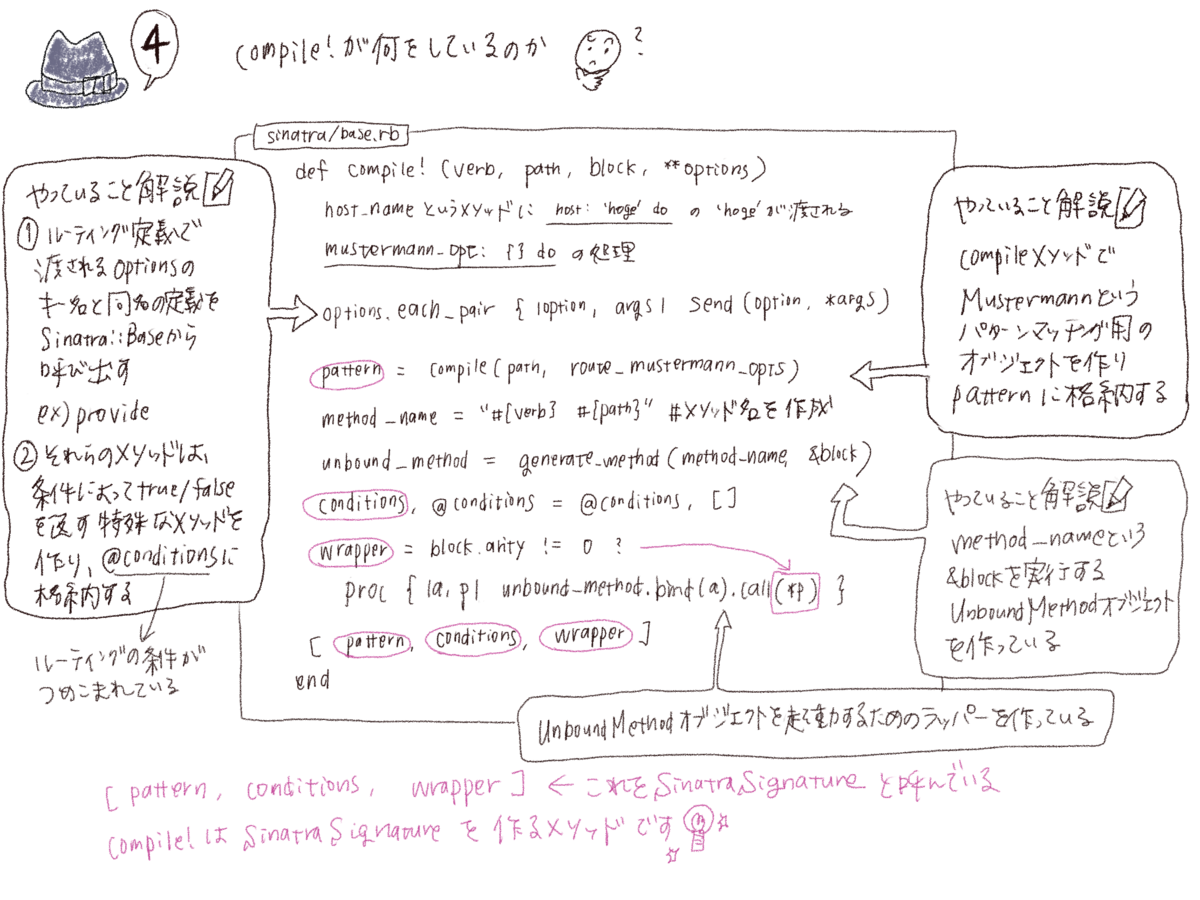 4
compile!が何をしているのか ?
sinatra/base.rb
def compile! (verb, path, block, **options)
host_name というメソッドに host: 'hoge' do の 'hoge' が渡される
mustermann_opt: {} do の処理
options.each_pair { |option, args| send (option, *args)
pattern = compile (path, route_mustermann_opts)
method_name = "#{verb} #{path}" #メソッド名を作成
unbound_method = generate_method (method_name, &block)
conditions, @conditions = @conditions, []
wrapper = block.arity != 0 ?
proc { |a, p| unbound_method.bind (a).call (*p) }
[ pattern, conditions, wrapper ]
end
やっていること解説
① ルーティング定義で
渡されるoptionsの
キー名と同名の定義を
Sinatra::Baseから
呼び出す
ex) provide
② それらのメソッドは、
条件によってtrue/false
を返す特殊なメソッドを
作り、@conditionsに
格納する
ルーティングの条件が
つめこまれている
やっていること解説
compileメソッドで
Mustermannという
パターンマッチング用の
オブジェクトを作り
patternに格納する
やっていること解説
method_nameという
&blockを実行する
UnboundMethodオブジェクト
を作っている
UnboundMethodオブジェクトを起動するためのラッパーを作っている
[ pattern, conditions, wrapper ] ← これをSinatraSignatureと呼んでいる
compile!は SinatraSignature を作るメソッドです